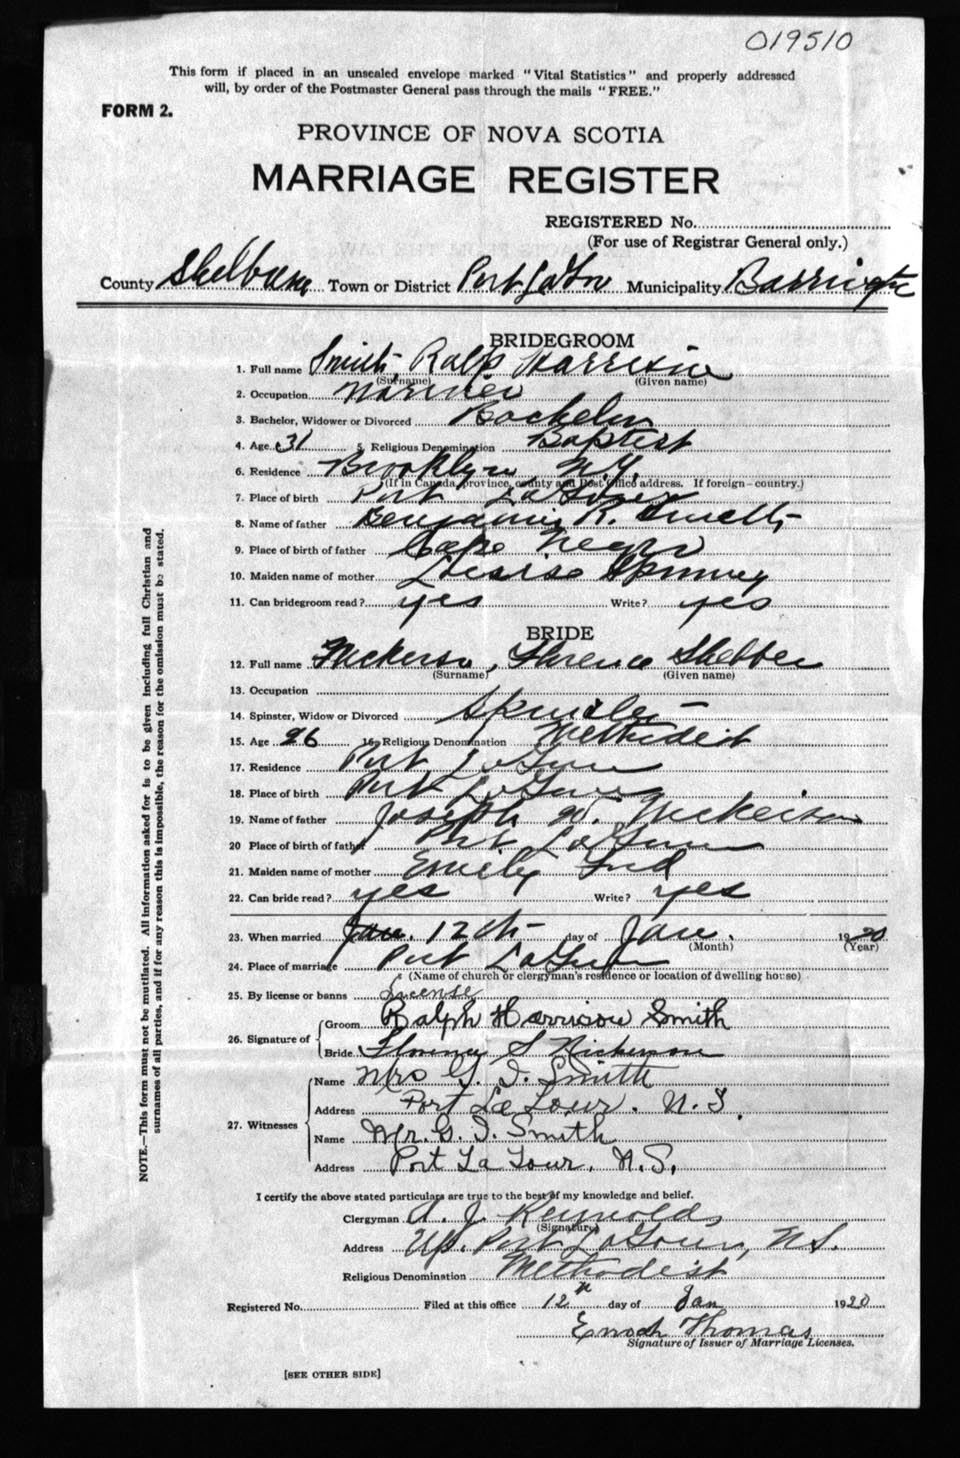 019510
This form if placed in an unsealed envelope marked "Vital Statistics" and properly addressed
will, by order of the Postmaster General pass through the mails "FREE."
FORM 2.
PROVINCE OF NOVA SCOTIA
MARRIAGE REGISTER
REGISTERED No.
(For use of Registrar General only.)
County Shelburne Town or District Port LaTour Municipality Barrington
BRIDEGROOM
1. Full name Smith, Ralph Harrison
(Surname) (Given name)
2. Occupation Mariner
3. Bachelor, Widower or Divorced Bachelor
4. Age 31 5. Religious Denomination Baptist
6. Residence Brooklyn N.Y.
(If in Canada, province, county and Post Office address. If foreign—country.)
7. Place of birth Port LaTour
8. Name of father Benjamin R. Smith
9. Place of birth of father Cape Negro
10. Maiden name of mother Spinney
11. Can bridegroom read? yes Write? yes
BRIDE
12. Full name Nickerson, Florence
(Surname) (Given name)
13. Occupation
14. Spinster, Widow or Divorced Spinster
15. Age 26 16. Religious Denomination Methodist
17. Residence Port LaTour
18. Place of birth Port LaTour
19. Name of father Joseph W. Nickerson
20 Place of birth of father Port LaTour
21. Maiden name of mother Emily
22. Can bride read? yes Write? yes
23. When married Jan. 12th day of Jan. 1920
(Month) (Year)
24. Place of marriage Port LaTour
(Name of church or clergyman's residence or location of dwelling house)
25. By license or banns License
26. Signature of
Groom Ralph Harrison Smith
Bride Florence S Nickerson
27. Witnesses
Name Mrs G. I. Smith
Address Port La Tour. N.S.
Name Mr. G. I. Smith
Address Port La Tour. N.S.
I certify the above stated particulars are true to the best of my knowledge and belief.
Clergyman A. J. Reynolds
(Signature)
Address Up. Port LaTour, N.S.
Religious Denomination Methodist
Registered No. Filed at this office 12th day of Jan 1920
Enoch Thomas
Signature of Issuer of Marriage Licenses.
[SEE OTHER SIDE]
NOTE.—This form must not be mutilated. All information asked for is to be given including full Christian and
surnames of all parties, and if for any reason this is impossible, the reason for the omission must be stated.